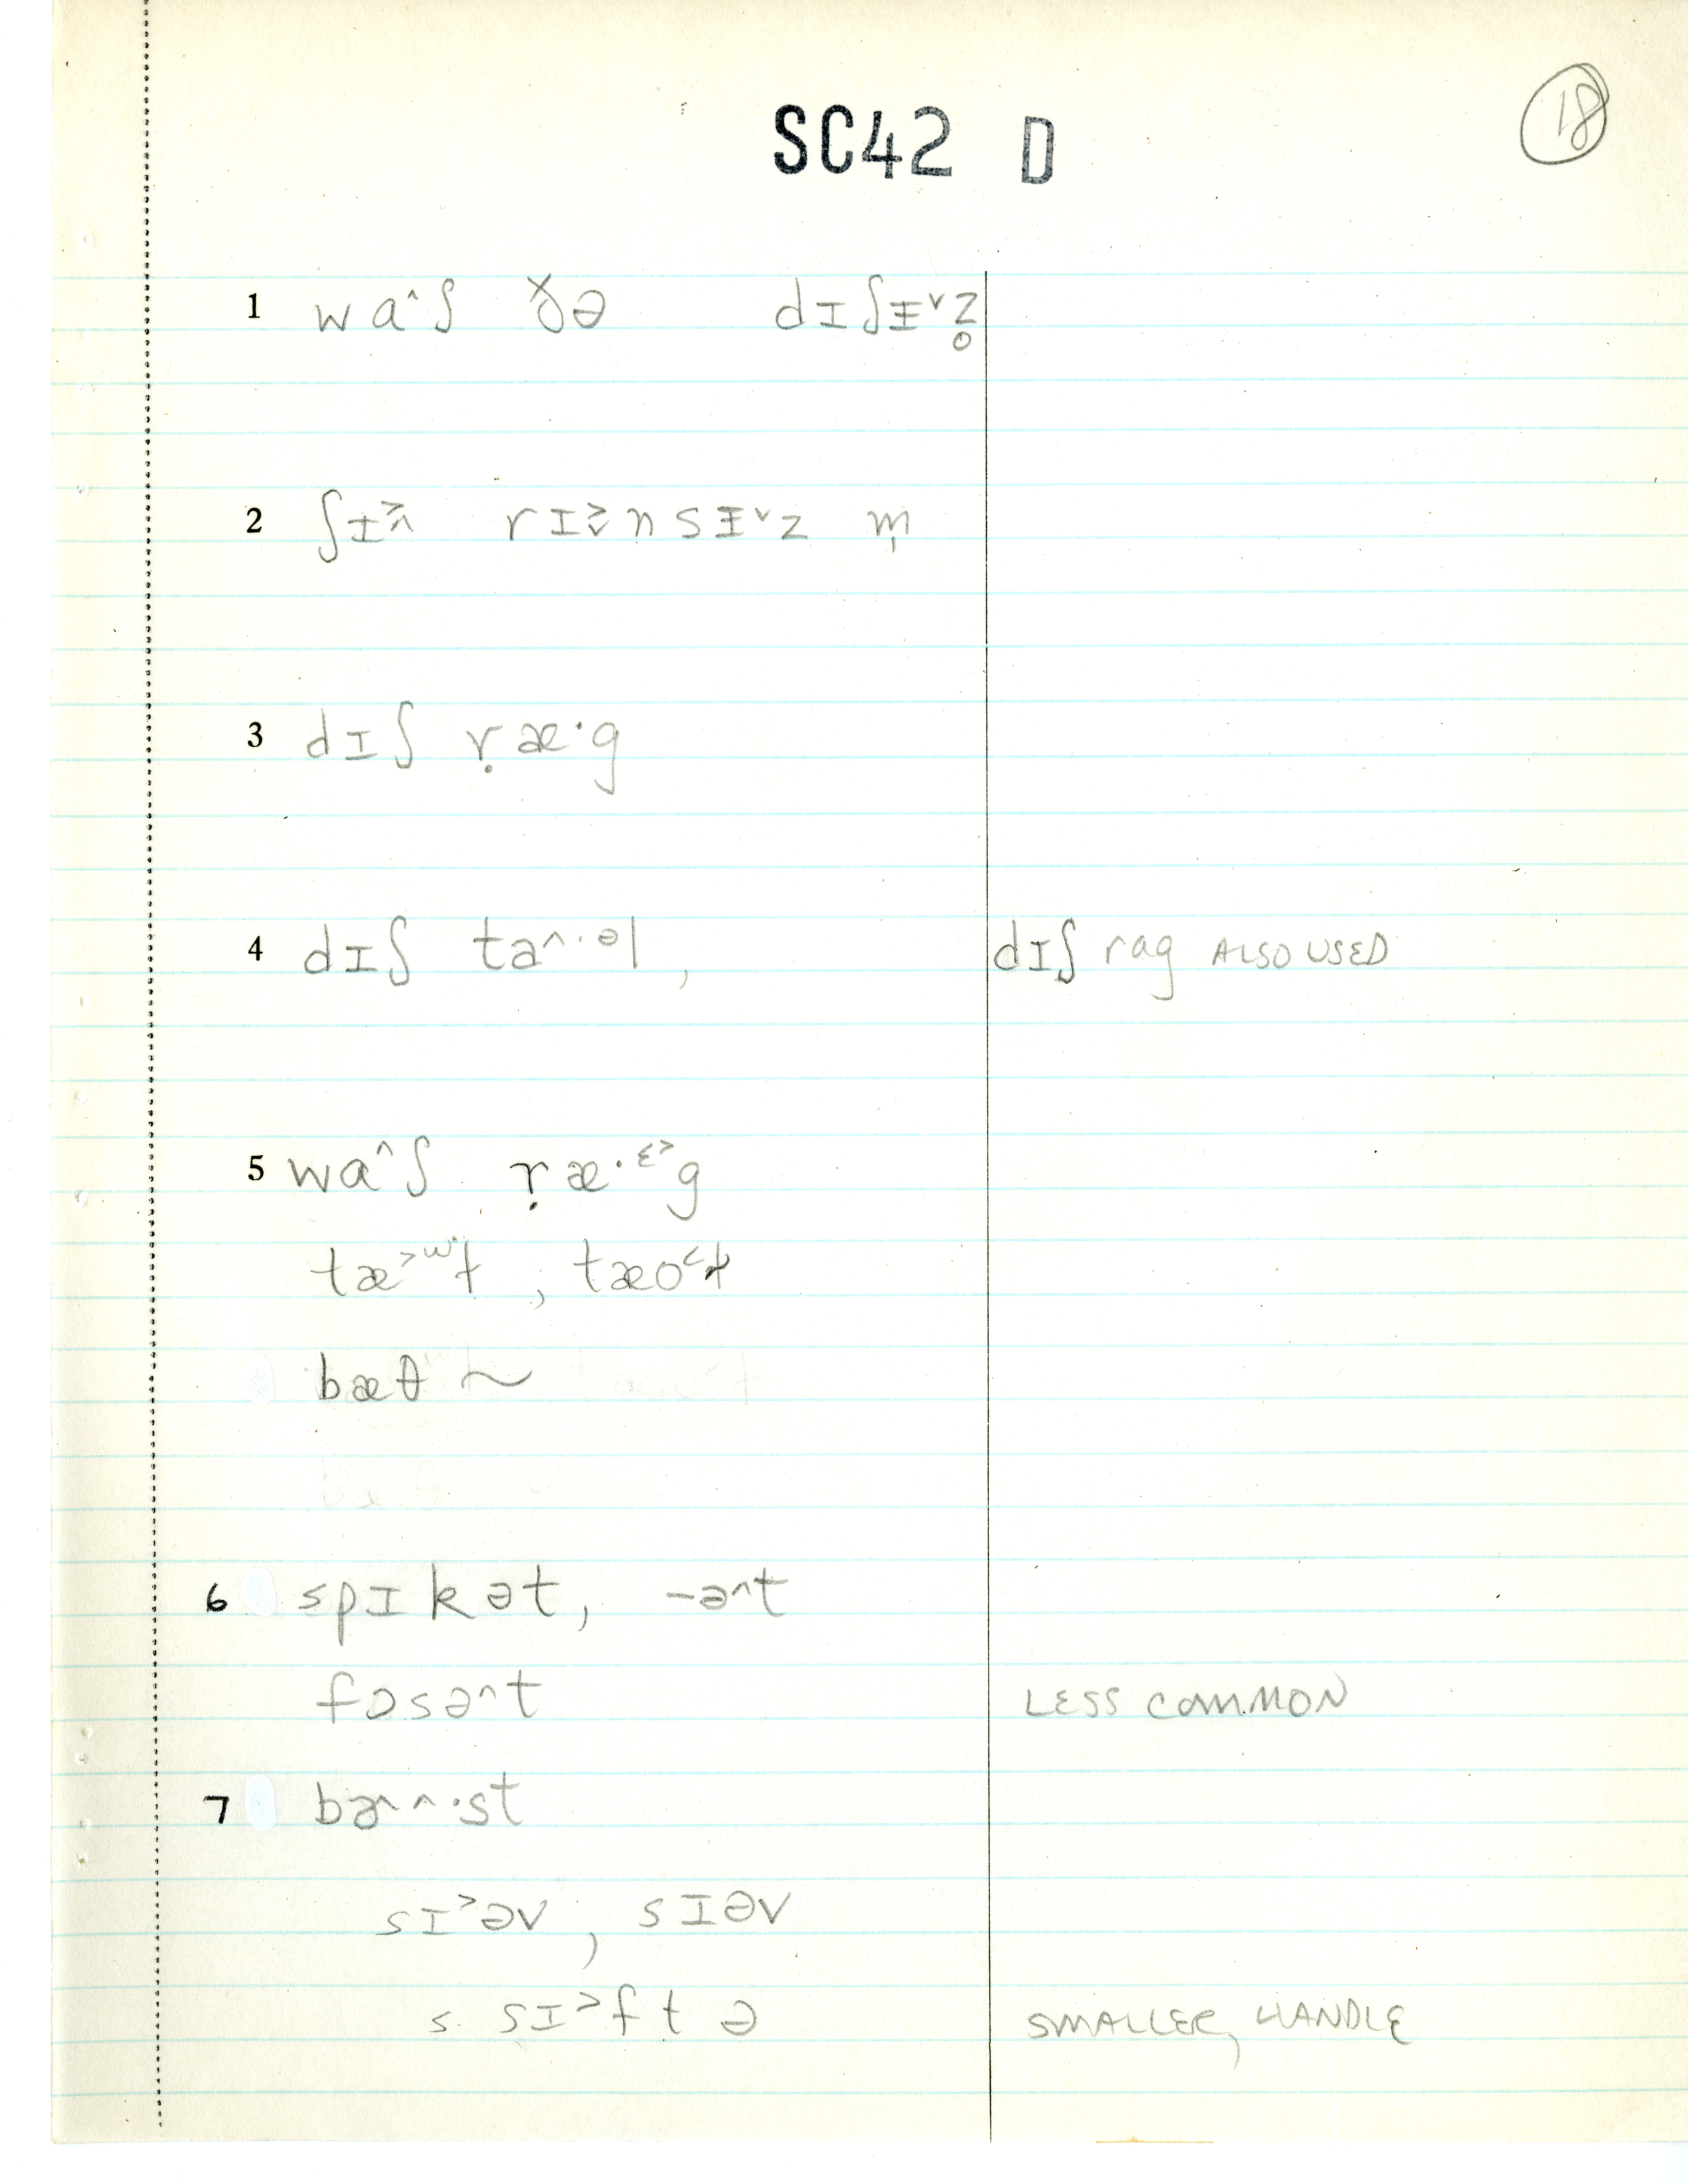 SC42 D
18
1 wɑ^ʃ ðə dɪʃɪ̵ᵛz̥
2 ʃɪ˃^ rɪ˃ᵛnsɪ̵ᵛz m̩
3 dɪʃ ṛæ·g
4 dɪʃ ta^·ᵊl, dɪʃ rag ALSO USED
5 wɑ^ʃ ṛæ·ᵋ˃g
bæθ ~
6 spɪkət, -ə^t
fɔsə^t LESS COMMON
7 bɚ^·st
sɪ˃əv, sɪəv
s. sɪ˃ftə SMALLER, HANDLE